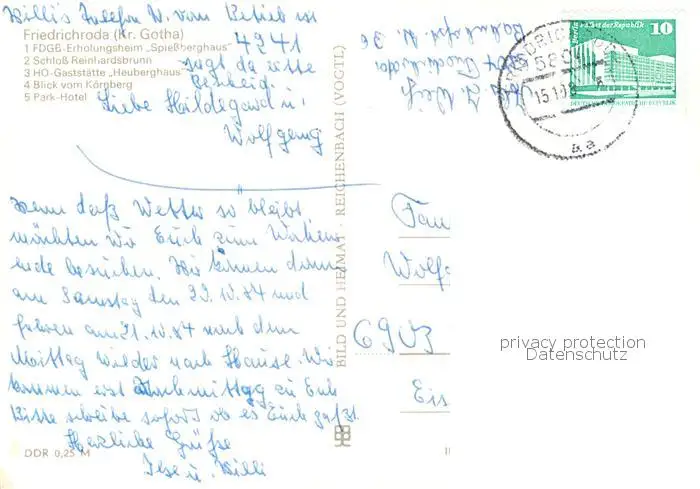 Willi's Telefon N. vom Betrieb ist
4241
sagt da bitte
Bescheid.
Liebe Hildegard u.
Wolfgang
Friedrichroda (Kr. Gotha)
1 FDGB-Erholungsheim „Spießberghaus"
2 Schloß Reinhardsbrunn
3 HO-Gaststätte „Heuberghaus"
4 Blick vom Körnberg
5 Park-Hotel
Wenn daß Wetter so bleibt
möchten wir Euch zum Wochen
ende besuchen. Wir kommen dann
am Samstag den
und
fahren am 21.10.84 nach dem
Mittag wieder nach Hause. Wir
kommen erst Nachmittag zu Euch
Bitte schreibe sofort ob es Euch paßt.
Herzliche Grüße
Ilse u. Willi
DDR 0,25 M
BILD UND HEIMAT · REICHENBACH (VOGTL)
Abs. I.
Bahnhofst. N. 36
Fam
Wolfg
6903
Eis
Berlin Palast der Republik 10
DEUTSCHE DEMOKRATISCHE REPUBLIK
FRIEDRICHRODA
5804
15.10.8
a a
privacy protection
Datenschutz